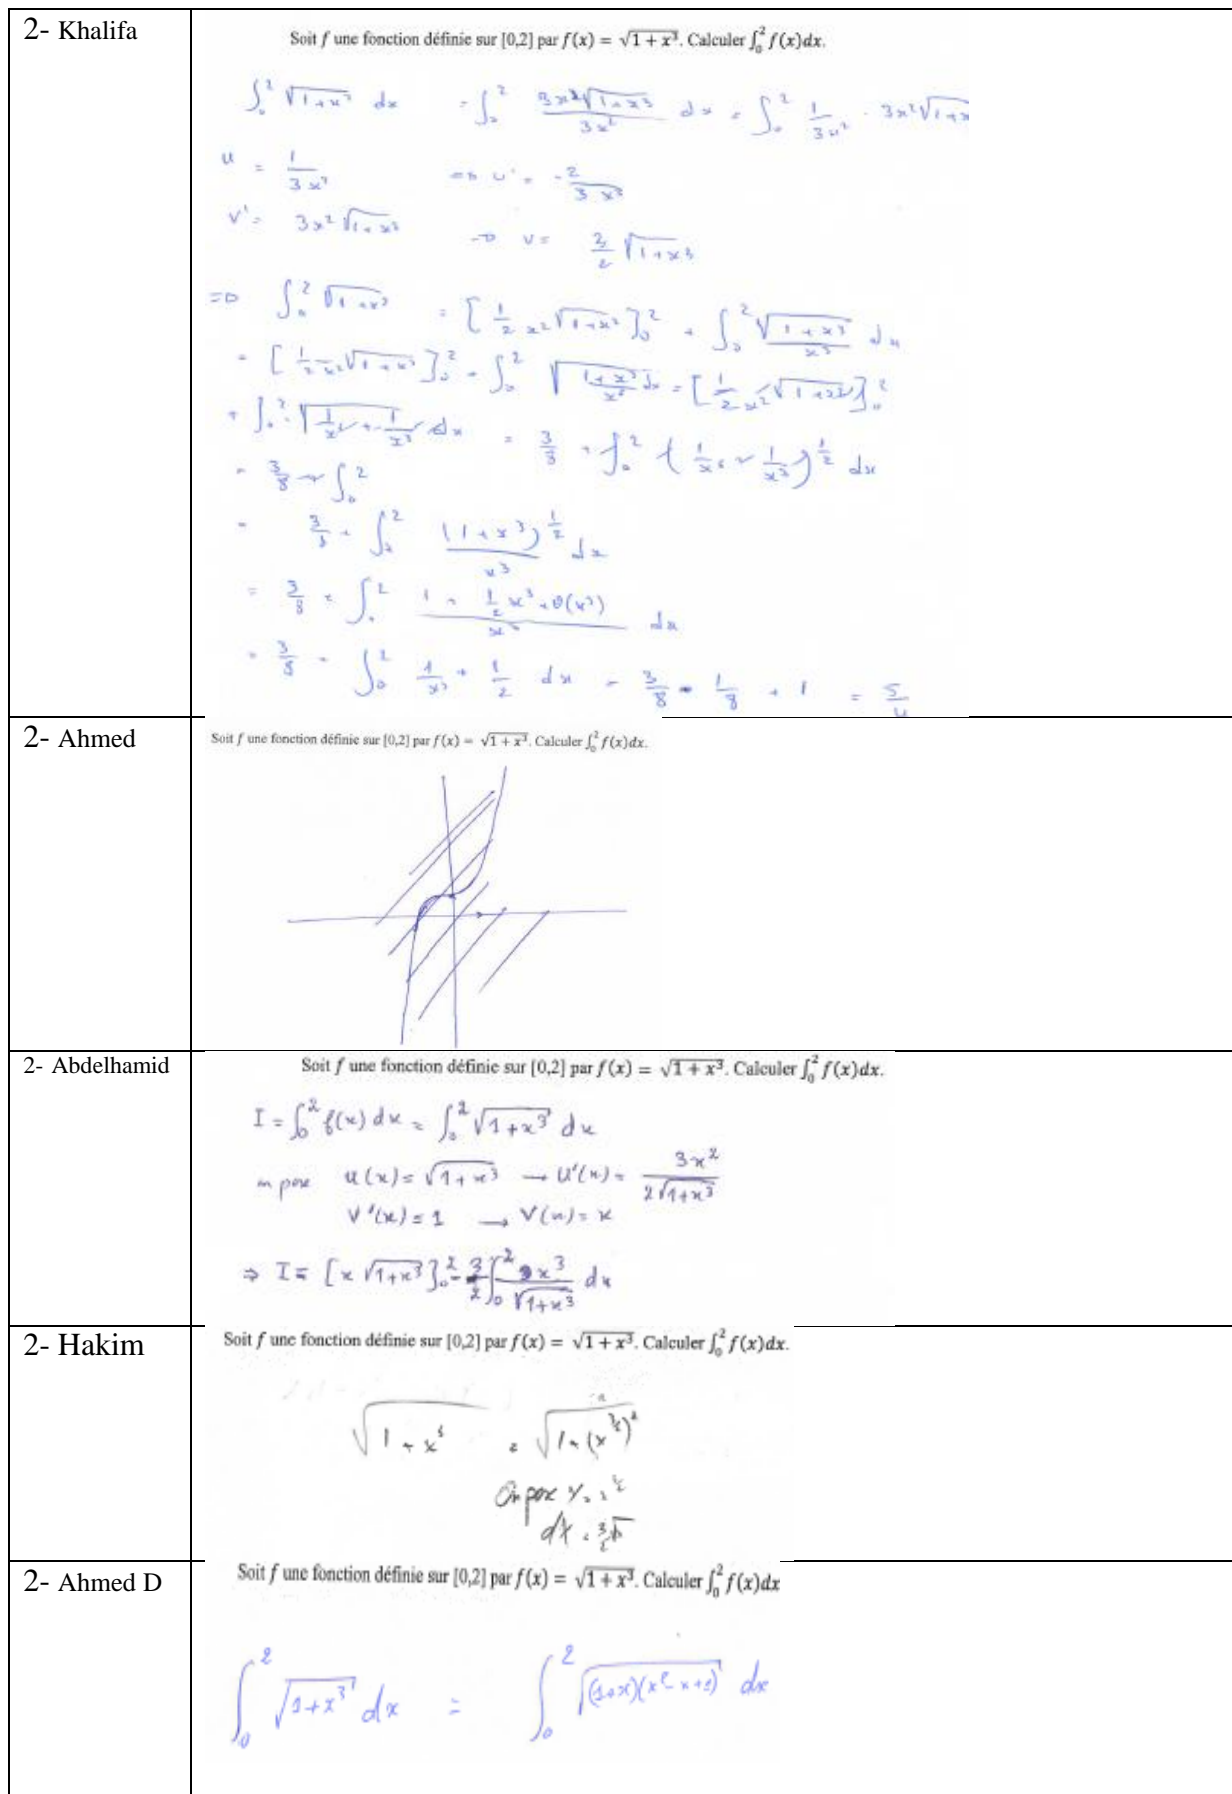 2- Khalifa
Soit f une fonction définie sur [0,2] par f(x) = √(1 + x³). Calculer ∫₀² f(x)dx.
∫₀² √(1+x³) dx = ∫₀² 3x²√(1+x³) / 3x² dx = ∫₀² 1/3x² · 3x²√(1+x
u = 1/3x² => u' = -2/3x³
v' = 3x²√(1+x³) → v =
=> ∫₀² √(1+x³) = [1/2x² √(1+x³)]₀² + ∫₀² √(1+x³)/x³ dx
= 3/8 + ∫₀²
= 3/8 + ∫₀² (1+x³)^½ / x³ dx
= 3/8 + ∫₀² 1 + ½x³ + θ(x³) / x³ dx
= 3/8 + ∫₀² 1/x³ + 1/2 dx = 3/8 - 1/8 + 1 = 5/4
2- Ahmed
Soit f une fonction définie sur [0,2] par f(x) = √(1 + x³). Calculer ∫₀² f(x)dx.
2- Abdelhamid
Soit f une fonction définie sur [0,2] par f(x) = √(1 + x³). Calculer ∫₀² f(x)dx.
I = ∫₀² f(x) dx = ∫₀² √(1+x³) dx
on pose u(x) = √(1+x³) → U'(x) = 3x² / 2√(1+x³)
V'(x) = 1 → V(x) = x
⇒ I = [x √(1+x³)]₀² - 3/2 ∫₀² x³ / √(1+x³) dx
2- Hakim
Soit f une fonction définie sur [0,2] par f(x) = √(1 + x³). Calculer ∫₀² f(x)dx.
√(1+x³) = √(1+(x^3/2)²)
On pose
2- Ahmed D
Soit f une fonction définie sur [0,2] par f(x) = √(1 + x³). Calculer ∫₀² f(x)dx
∫₀² √(1+x³) dx = ∫₀² √((1+x)(x²-x+1)) dx